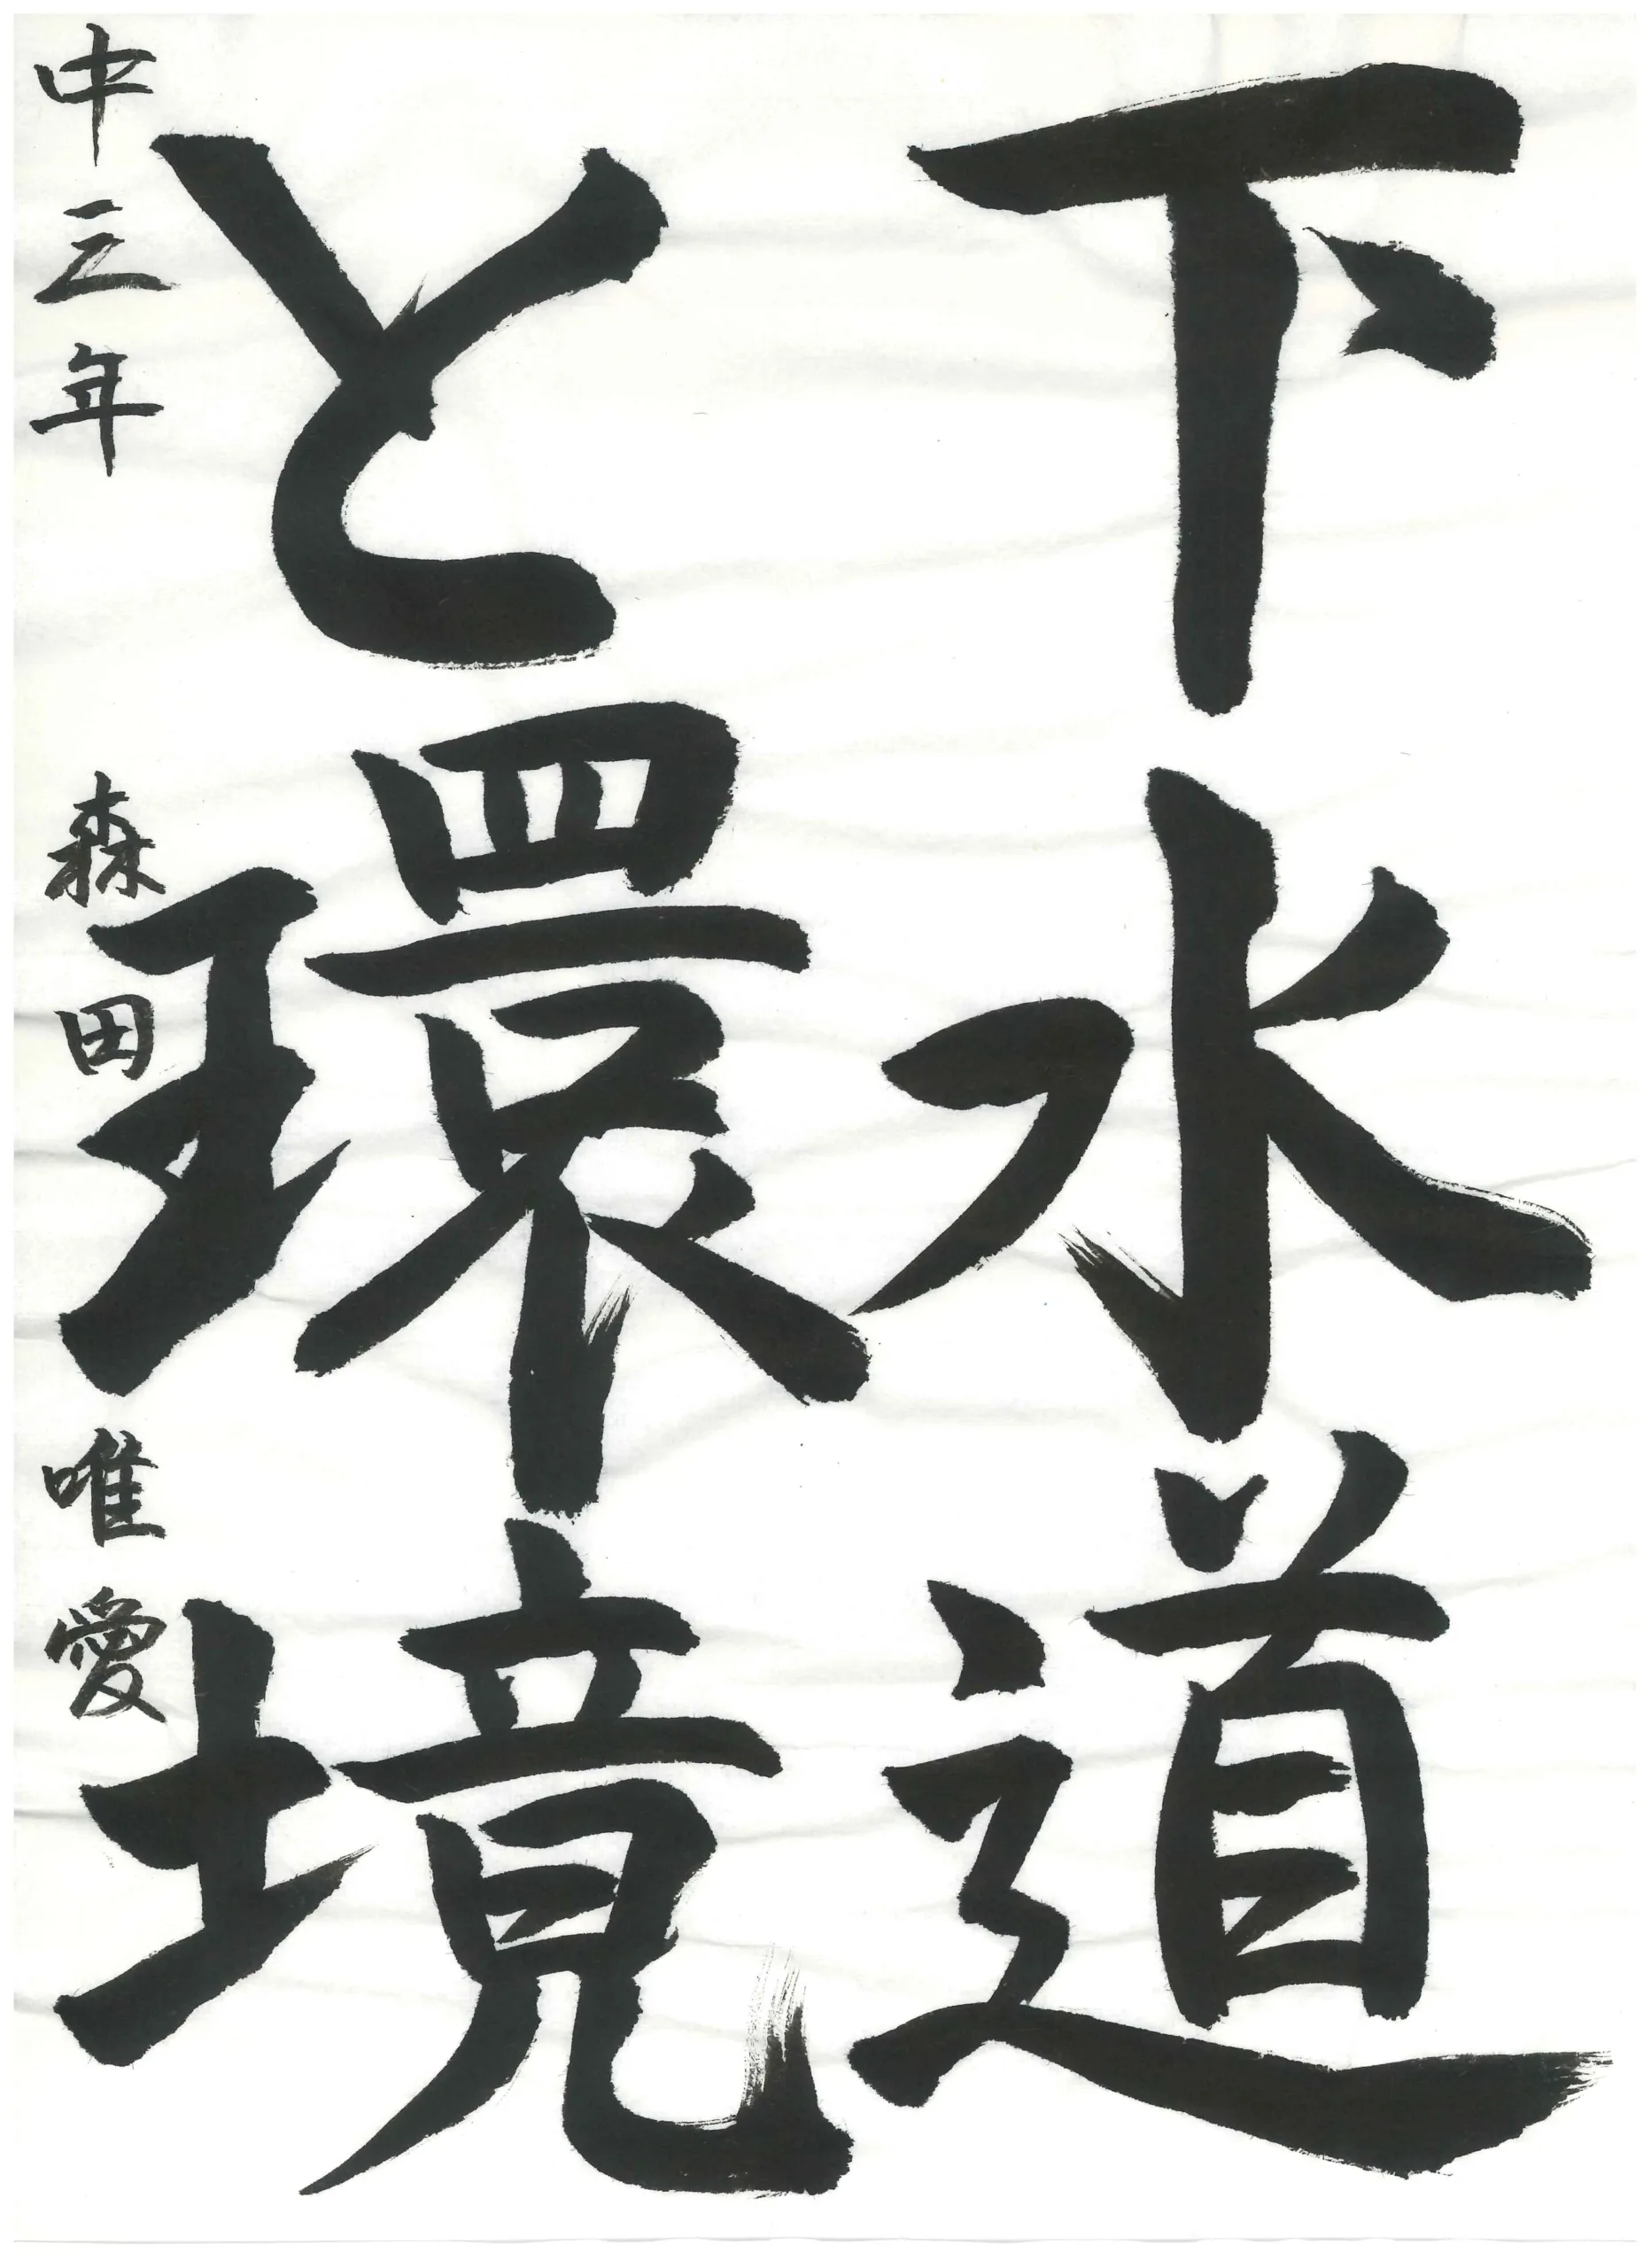 下水道
と環境
中三年 森田唯愛